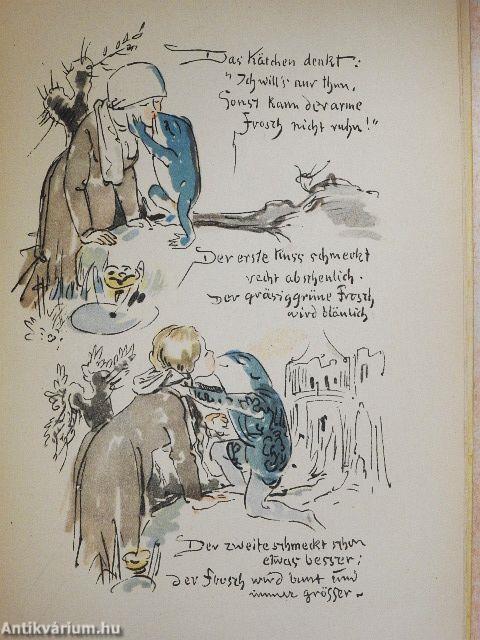 Das Kätchen denkt:
"Ich will's nur thun,
Sonst kann der arme
Frosch nicht ruhn!"
Der erste Kuss schmeckt
recht abscheulich.
Der gräsiggrüne Frosch
wird bläulich
Der zweite schmeckt schon
etwas besser;
der Frosch wird bunt und
immer grösser-
Antikvárium.hu